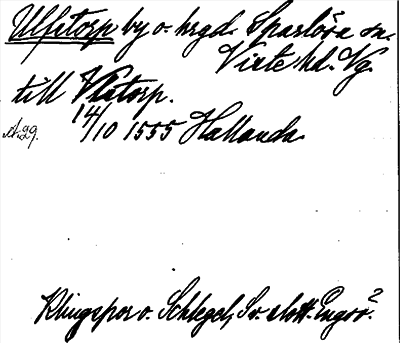 Ulfstorp by o. hrgd. Sparlösa sn.
Viste hd. Vg.
till Vlstorp.
14/10 1555 Hallanda
A. 29.
Klingspor o. Schlegel, Sv. slott. Engsö?